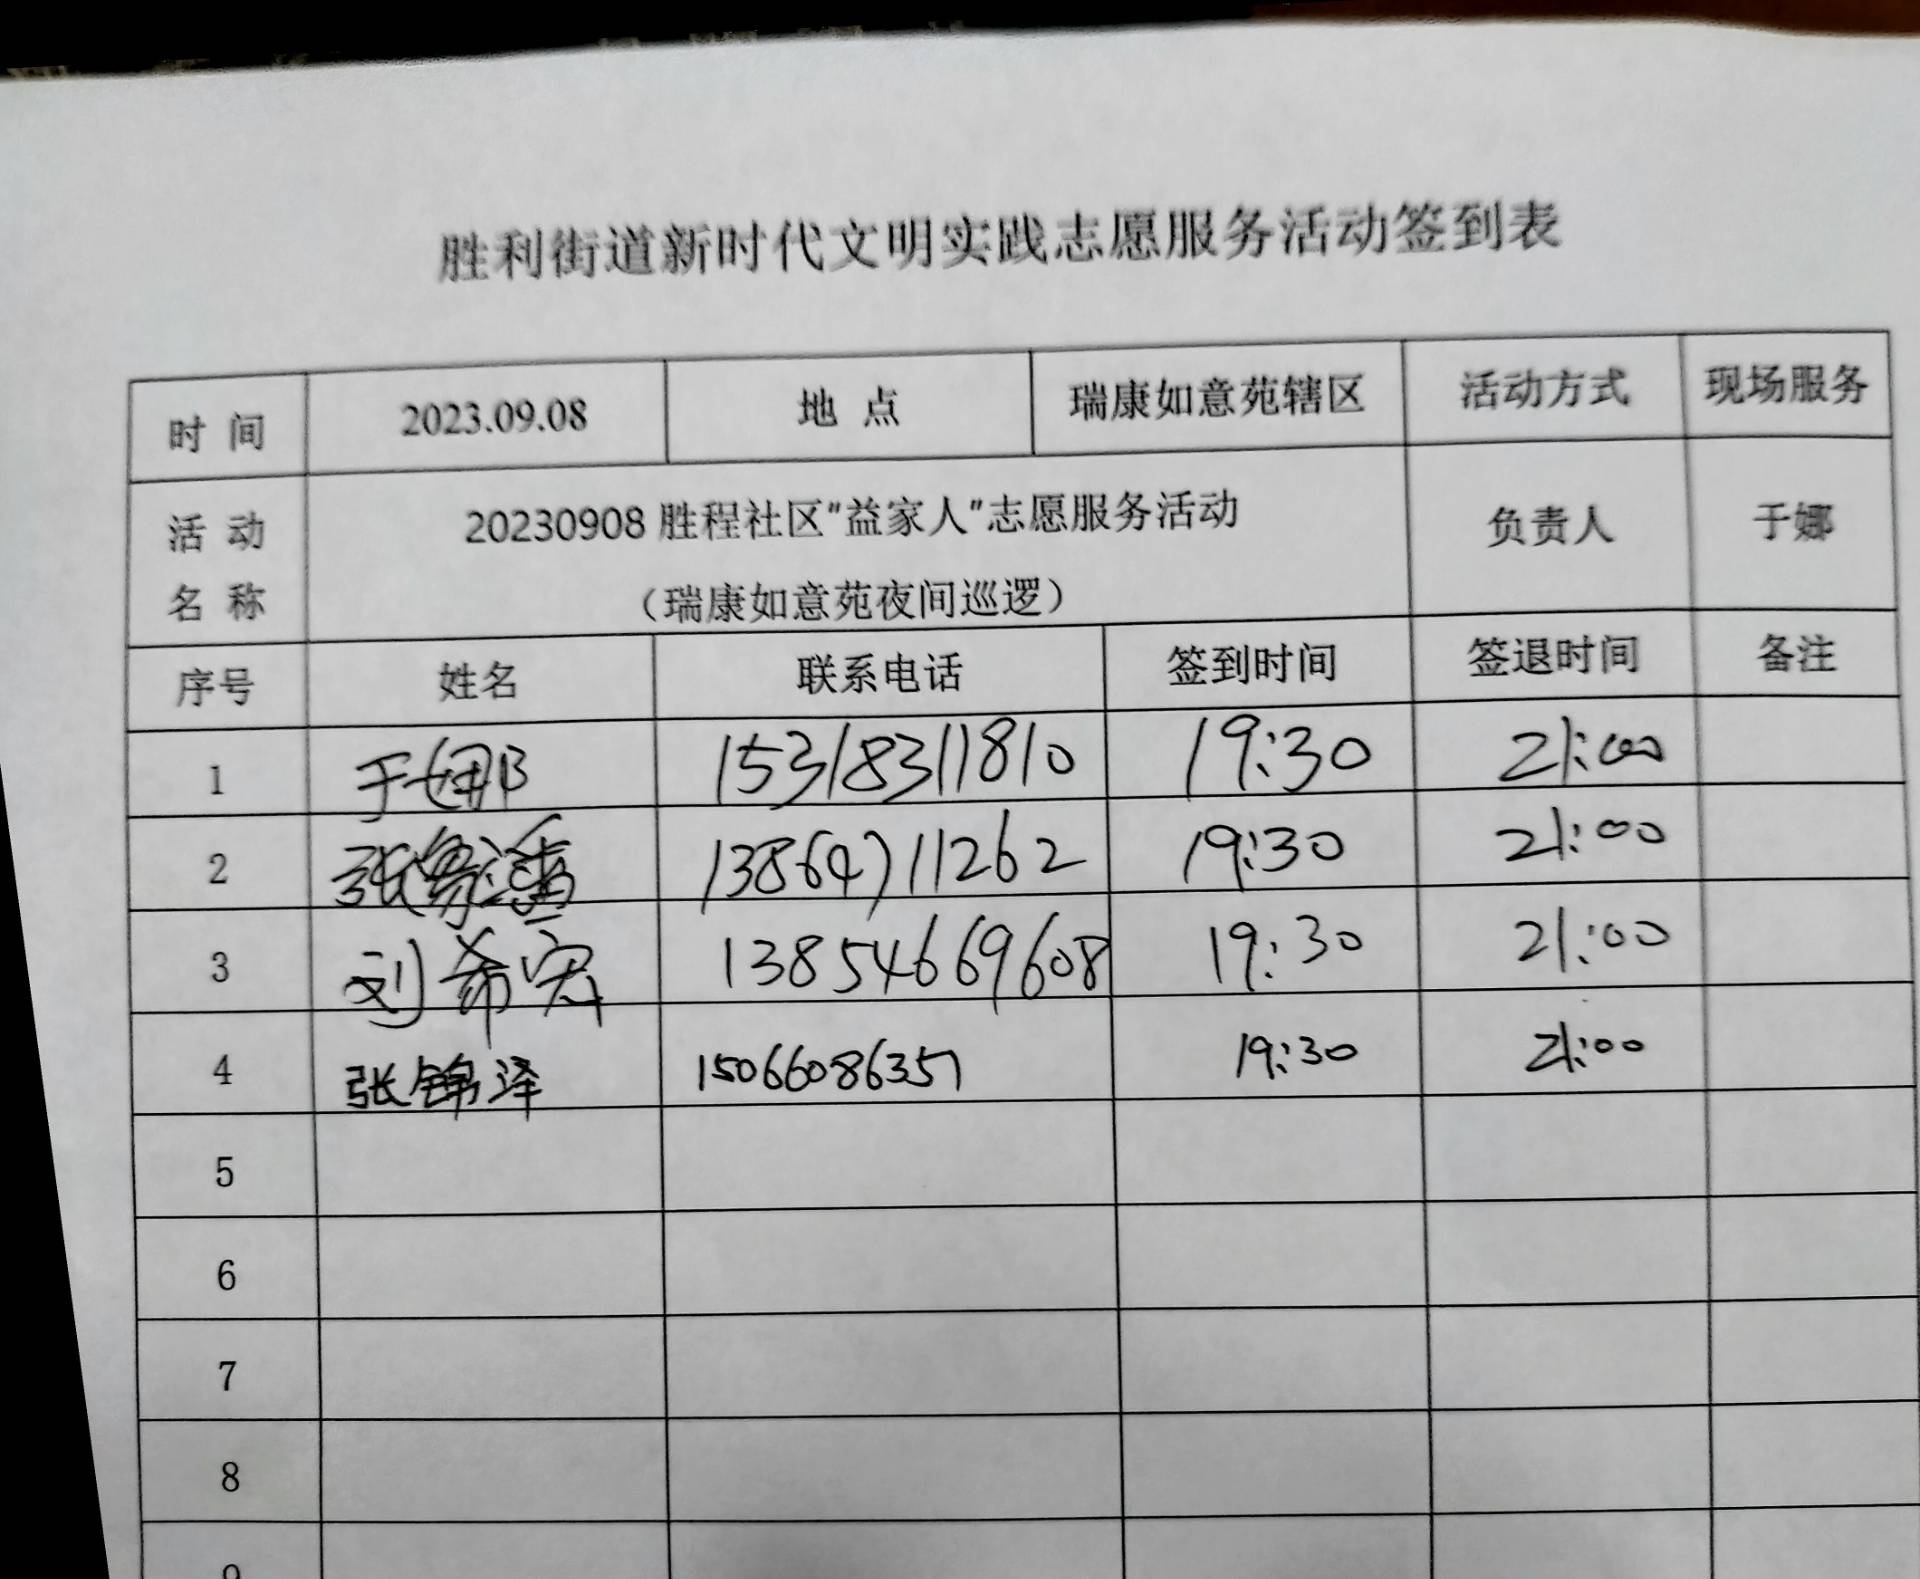 胜利街道新时代文明实践志愿服务活动签到表
时 间 2023.09.08 地 点 瑞康如意苑辖区 活动方式 现场服务
活 动 名 称 20230908 胜程社区"益家人"志愿服务活动 负责人 于娜
（瑞康如意苑夜间巡逻）
序号 姓名 联系电话 签到时间 签退时间 备注
1 于娜 15318311810 19:30 21:00
2 张 13864711262 19:30 21:00
3 刘希宏 13854669608 19:30 21:00
4 张锦泽 15066086357 19:30 21:00
5
6
7
8
9